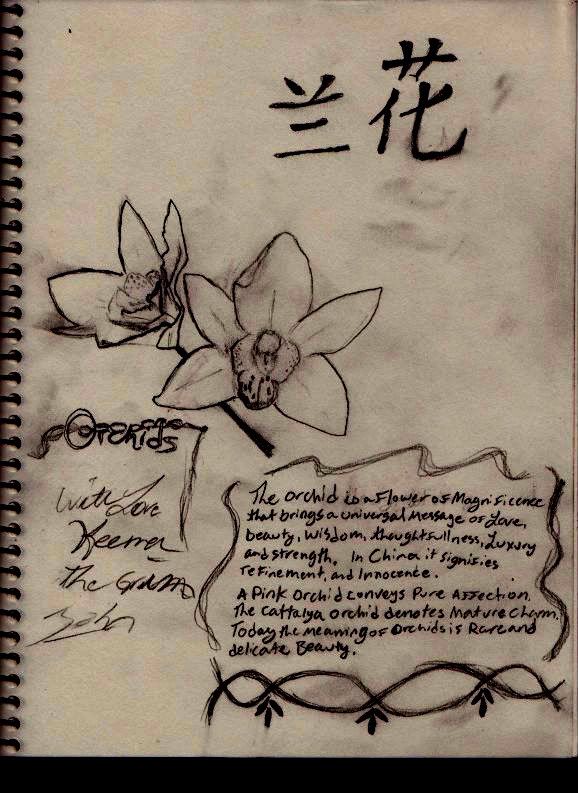 兰花
Orchids
With Love
Keema
The
The orchid is a flower of Magnificence
that brings a universal Message of Love,
beauty, Wisdom, thoughtfullness, Luxury
and strength. In China it signifies
refinement, and Innocence.
A Pink Orchid conveys Pure Affection.
The Cattalya orchid denotes Mature Charm.
Today the meaning of Orchids is Rare and
delicate Beauty.